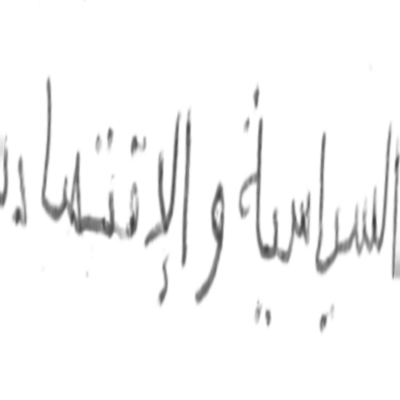 السياسية والإقتصاد